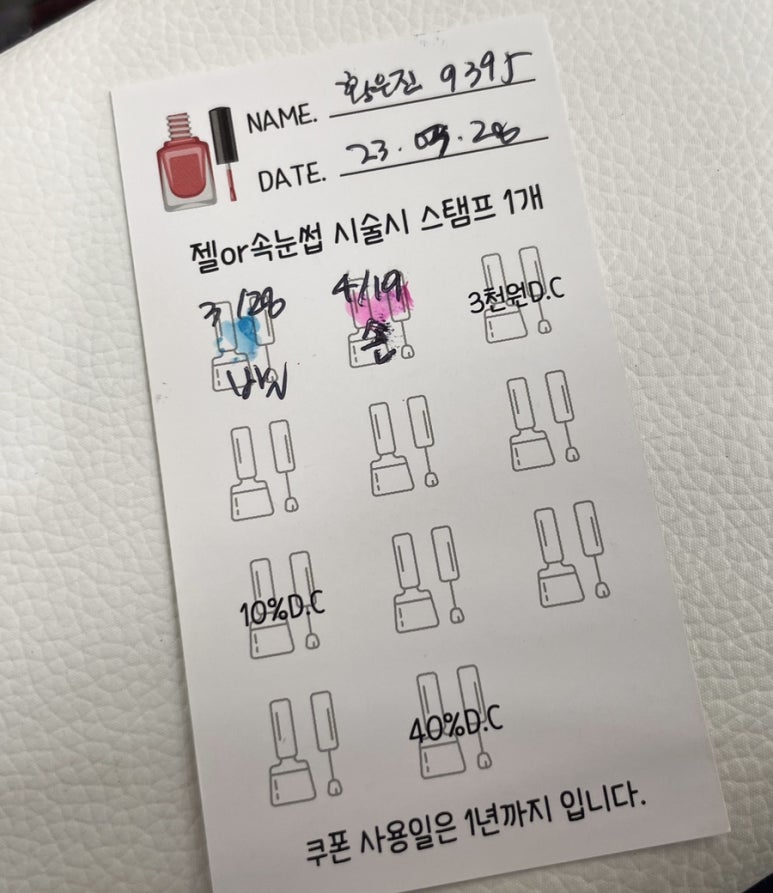 NAME. 황은진 9395
DATE. 23.03.28
젤or속눈썹 시술시 스탬프 1개
3/28 4/19 3천원D.C
손
10%D.C
40%D.C
쿠폰 사용일은 1년까지 입니다.